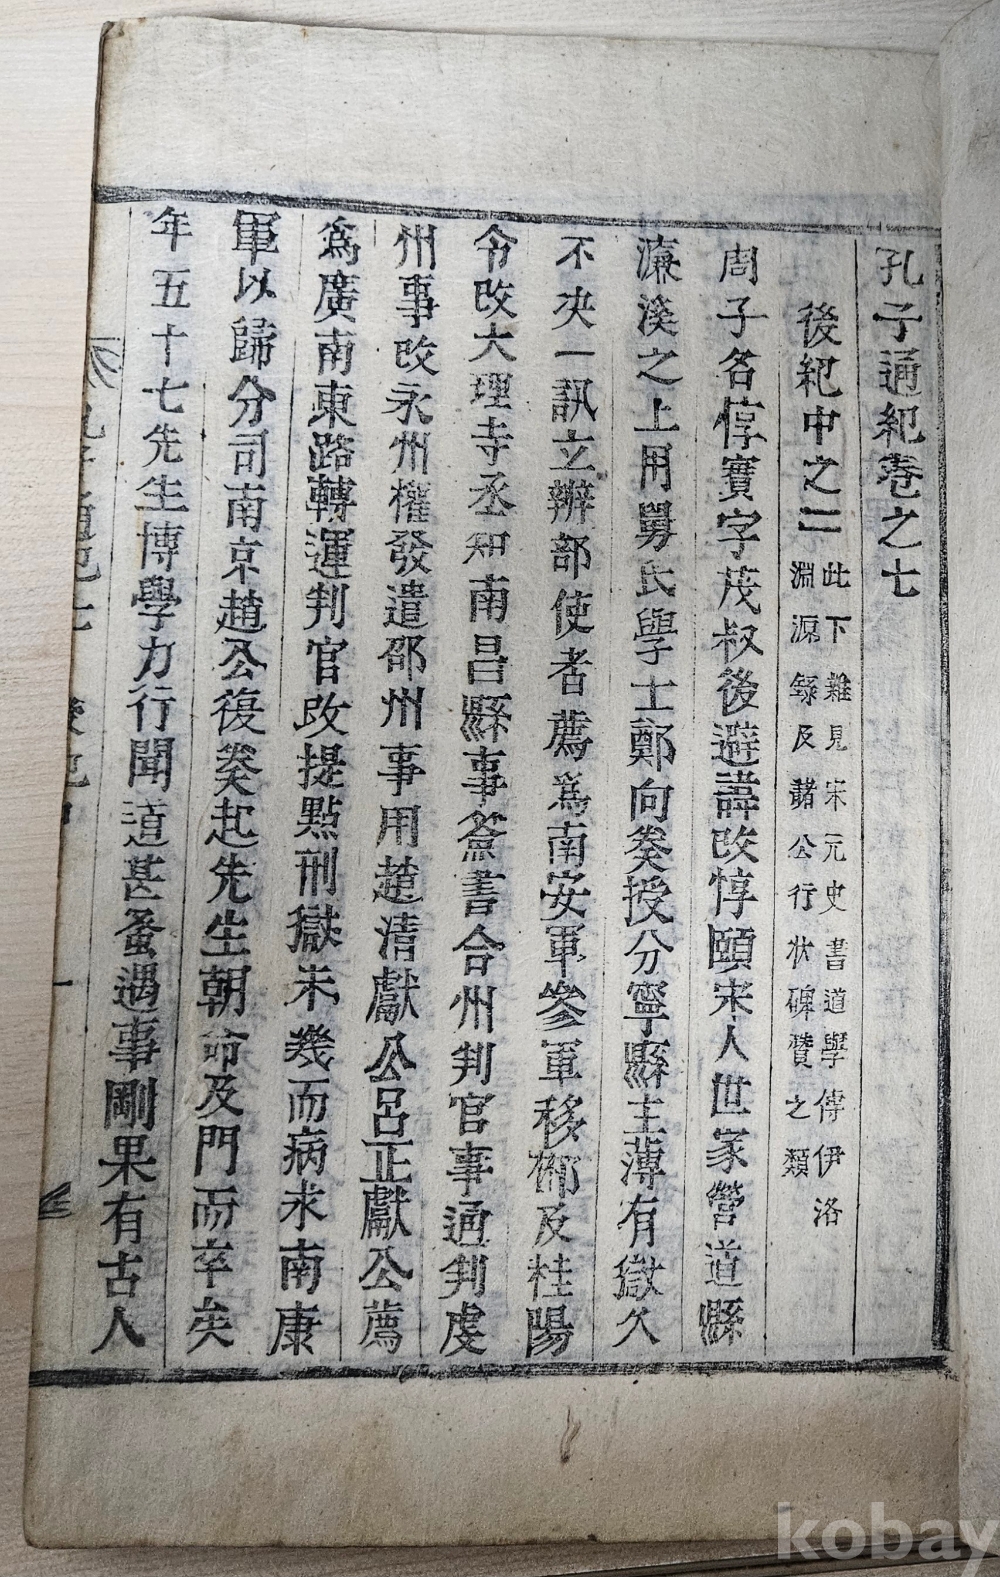 孔子通紀卷之七
後紀中之二
此下雜見宋元史書道學傳伊洛
淵源錄及諸公行狀碑贊之類
周子名惇實字茂叔後避諱改惇頤宋人世家營道縣
濂溪之上用舅氏學士鄭向奏授分寧縣主薄有獄久
不決一訊立辨部使者薦爲南安軍參軍移郴及桂陽
令改大理寺丞知南昌縣事簽書合州判官事通判虔
州事改永州權發遣邵州事用趙清獻公呂正獻公薦
爲廣南東路轉運判官改提點刑獄未幾而病求南康
軍以歸分司南京趙公復奏起先生朝命及門而卒矣
年五十七先生博學力行聞道甚蚤遇事剛果有古人
kobay